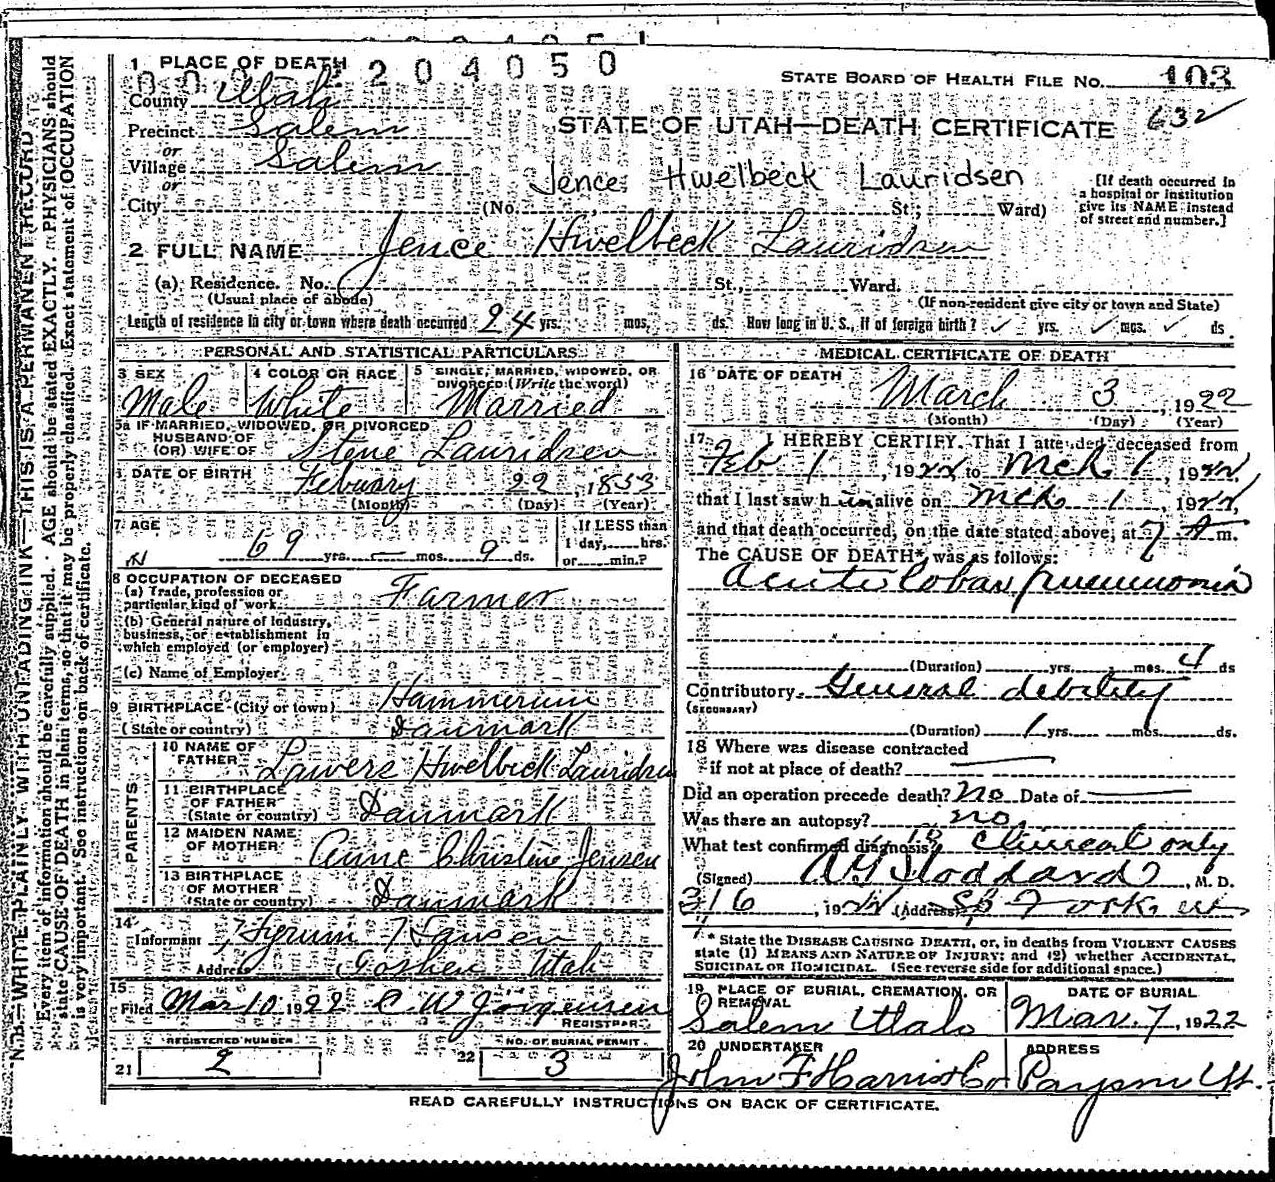 1 PLACE OF DEATH
204050
STATE BOARD OF HEALTH FILE No. 103
County Utah
632
Precinct Salem
STATE OF UTAH—DEATH CERTIFICATE
or
Village Salem
or
Jence Hwelbeck Lauridsen
City (No. St.; Ward)
[If death occurred in a hospital or institution give its NAME instead of street and number.]
2 FULL NAME Jence Hwelbeck Lauridsen
(a) Residence. No. St., Ward.
(Usual place of abode) (If non-resident give city or town and State)
Length of residence in city or town where death occurred 24 yrs. mos. ds. How long in U. S., if of foreign birth? ✓ yrs. ✓ mos. ✓ ds
PERSONAL AND STATISTICAL PARTICULARS
3 SEX Male
4 COLOR OR RACE White
5 SINGLE, MARRIED, WIDOWED, OR DIVORCED (Write the word) Married
5a IF MARRIED, WIDOWED, OR DIVORCED
HUSBAND OF
(OR) WIFE OF Stene Lauridsen
DATE OF BIRTH Febuary 22, 1853
(Month) (Day) (Year)
7 AGE 69 yrs. — mos. 9 ds.
If LESS than 1 day, hrs. or min.?
8 OCCUPATION OF DECEASED
(a) Trade, profession or particular kind of work Farmer
(b) General nature of industry, business, or establishment in which employed (or employer)
(c) Name of Employer
9 BIRTHPLACE (City or town) Hammerum
(State or country) Danmark
PARENTS
10 NAME OF FATHER Lawers Hwelbeck Lauridsen
11 BIRTHPLACE OF FATHER (State or country) Danmark
12 MAIDEN NAME OF MOTHER Anne Christine Jensen
13 BIRTHPLACE OF MOTHER (State or country) Danmark
14
Informant Hyrum Hansen
Address Goshen Utah
15
Filed Mar 10 1922 C. W. Jorgensen
REGISTRAR
REGISTERED NUMBER
21 2
NO. OF BURIAL PERMIT
22 3
MEDICAL CERTIFICATE OF DEATH
16 DATE OF DEATH March 3, 1922
(Month) (Day) (Year)
17 I HEREBY CERTIFY, That I attended deceased from
Feb 1, 1922, to Mch 1, 1922,
that I last saw him alive on Mch 1, 1922,
and that death occurred, on the date stated above, at 7 A m.
The CAUSE OF DEATH*, was as follows:
Acute lobar pneumonia
(Duration) yrs. mos. 4 ds
Contributory General debility
(SECONDARY)
(Duration) 1 yrs. mos. ds.
18 Where was disease contracted
if not at place of death?
Did an operation precede death? No Date of
Was there an autopsy? no
What test confirmed diagnosis? Clinical only
(Signed) Stoddard, M. D.
1922 (Address) Sp Fork
* State the DISEASE CAUSING DEATH, or, in deaths from VIOLENT CAUSES
state (1) MEANS AND NATURE OF INJURY; and (2) whether ACCIDENTAL,
SUICIDAL OR HOMICIDAL. (See reverse side for additional space.)
19 PLACE OF BURIAL, CREMATION, OR REMOVAL
Salem Utah
DATE OF BURIAL
Mar. 7, 1922
20 UNDERTAKER
John F Harris Co
ADDRESS
Payson Ut.
READ CAREFULLY INSTRUCTIONS ON BACK OF CERTIFICATE.
N. B.—WRITE PLAINLY, WITH UNFADING INK—THIS IS A PERMANENT RECORD
Every item of information should be carefully supplied. AGE should be stated EXACTLY. PHYSICIANS should
state CAUSE OF DEATH in plain terms, so that it may be properly classified. Exact statement of OCCUPATION
is very important. See instructions on back of certificate.